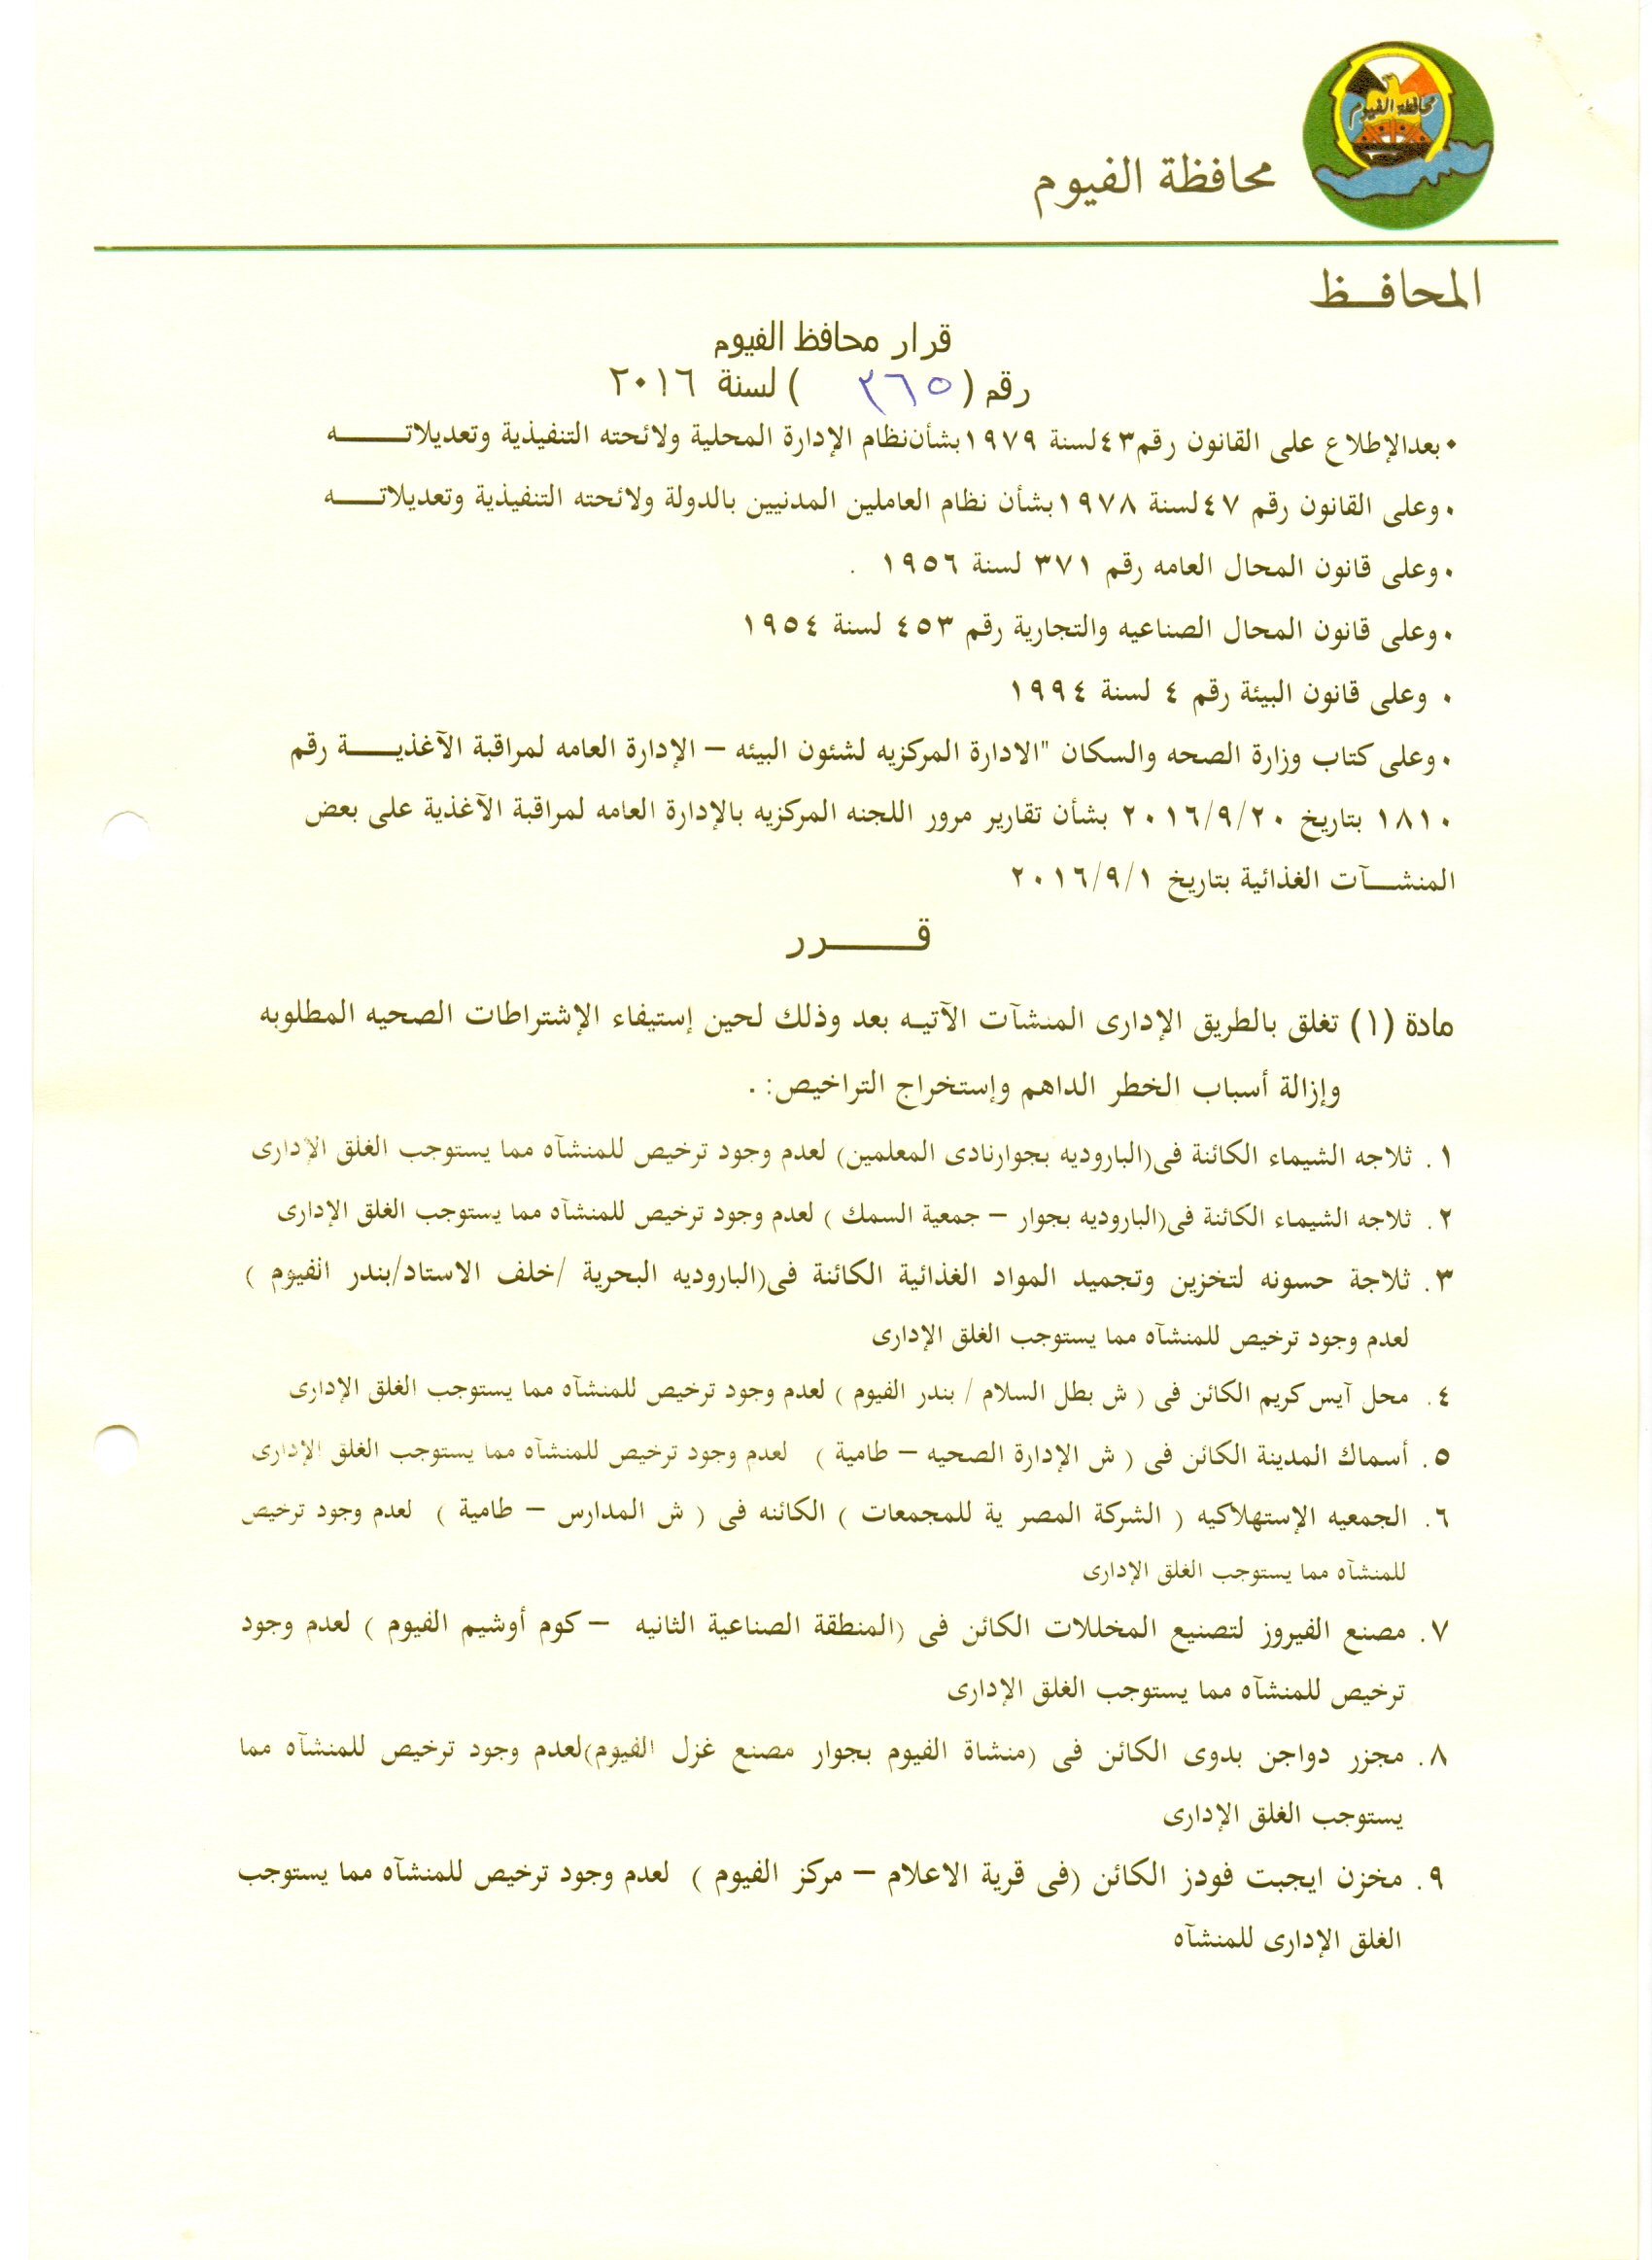 محافظة الفيوم
محافظة الفيوم
المحافــظ
قرار محافظ الفيوم
رقم ( ٣٦٥ ) لسنة ٢٠١٦
• بعدالإطلاع على القانون رقم٤٣لسنة ١٩٧٩بشأن‌نظام الإدارة المحلية ولائحته التنفيذية وتعديلاتـــــه
• وعلى القانون رقم ٤٧لسنة ١٩٧٨بشأن نظام العاملين المدنيين بالدولة ولائحته التنفيذية وتعديلاتـــــه
• وعلى قانون المحال العامه رقم ٣٧١ لسنة ١٩٥٦ .
• وعلى قانون المحال الصناعيه والتجارية رقم ٤٥٣ لسنة ١٩٥٤
• وعلى قانون البيئة رقم ٤ لسنة ١٩٩٤
• وعلى كتاب وزارة الصحه والسكان "الادارة المركزيه لشئون البيئه – الإدارة العامه لمراقبة الآغذيـــــة رقم
١٨١٠ بتاريخ ٢٠١٦/٩/٢٠ بشأن تقارير مرور اللجنه المركزيه بالإدارة العامه لمراقبة الآغذية على بعض
المنشـــآت الغذائية بتاريخ ٢٠١٦/٩/١
قـــــــرر
مادة (١) تغلق بالطريق الإدارى المنشآت الآتيـه بعد وذلك لحين إستيفاء الإشتراطات الصحيه المطلوبه
وإزالة أسباب الخطر الداهم وإستخراج التراخيص: .
١. ثلاجه الشيماء الكائنة فى(الباروديه بجوارنادى المعلمين) لعدم وجود ترخيص للمنشآه مما يستوجب الغلق الإدارى
٢. ثلاجه الشيماء الكائنة فى(الباروديه بجوار – جمعية السمك ) لعدم وجود ترخيص للمنشآه مما يستوجب الغلق الإدارى
٣. ثلاجة حسونه لتخزين وتجميد المواد الغذائية الكائنة فى(الباروديه البحرية /خلف الاستاد/بندر الفيوم )
لعدم وجود ترخيص للمنشآه مما يستوجب الغلق الإدارى
٤. محل آيس كريم الكائن فى ( ش بطل السلام / بندر الفيوم ) لعدم وجود ترخيص للمنشآه مما يستوجب الغلق الإدارى
٥. أسماك المدينة الكائن فى ( ش الإدارة الصحيه – طامية ) لعدم وجود ترخيص للمنشآه مما يستوجب الغلق الإدارى
٦. الجمعيه الإستهلاكيه ( الشركة المصر ية للمجمعات ) الكائنه فى ( ش المدارس – طامية ) لعدم وجود ترخيص
للمنشآه مما يستوجب الغلق الإدارى
٧. مصنع الفيروز لتصنيع المخللات الكائن فى (المنطقة الصناعية الثانيه – كوم أوشيم الفيوم ) لعدم وجود
ترخيص للمنشآه مما يستوجب الغلق الإدارى
٨. مجزر دواجن بدوى الكائن فى (منشاة الفيوم بجوار مصنع غزل الفيوم)لعدم وجود ترخيص للمنشآه مما
يستوجب الغلق الإدارى
٩. مخزن ايجبت فودز الكائن (فى قرية الاعلام – مركز الفيوم ) لعدم وجود ترخيص للمنشآه مما يستوجب
الغلق الإدارى للمنشآه